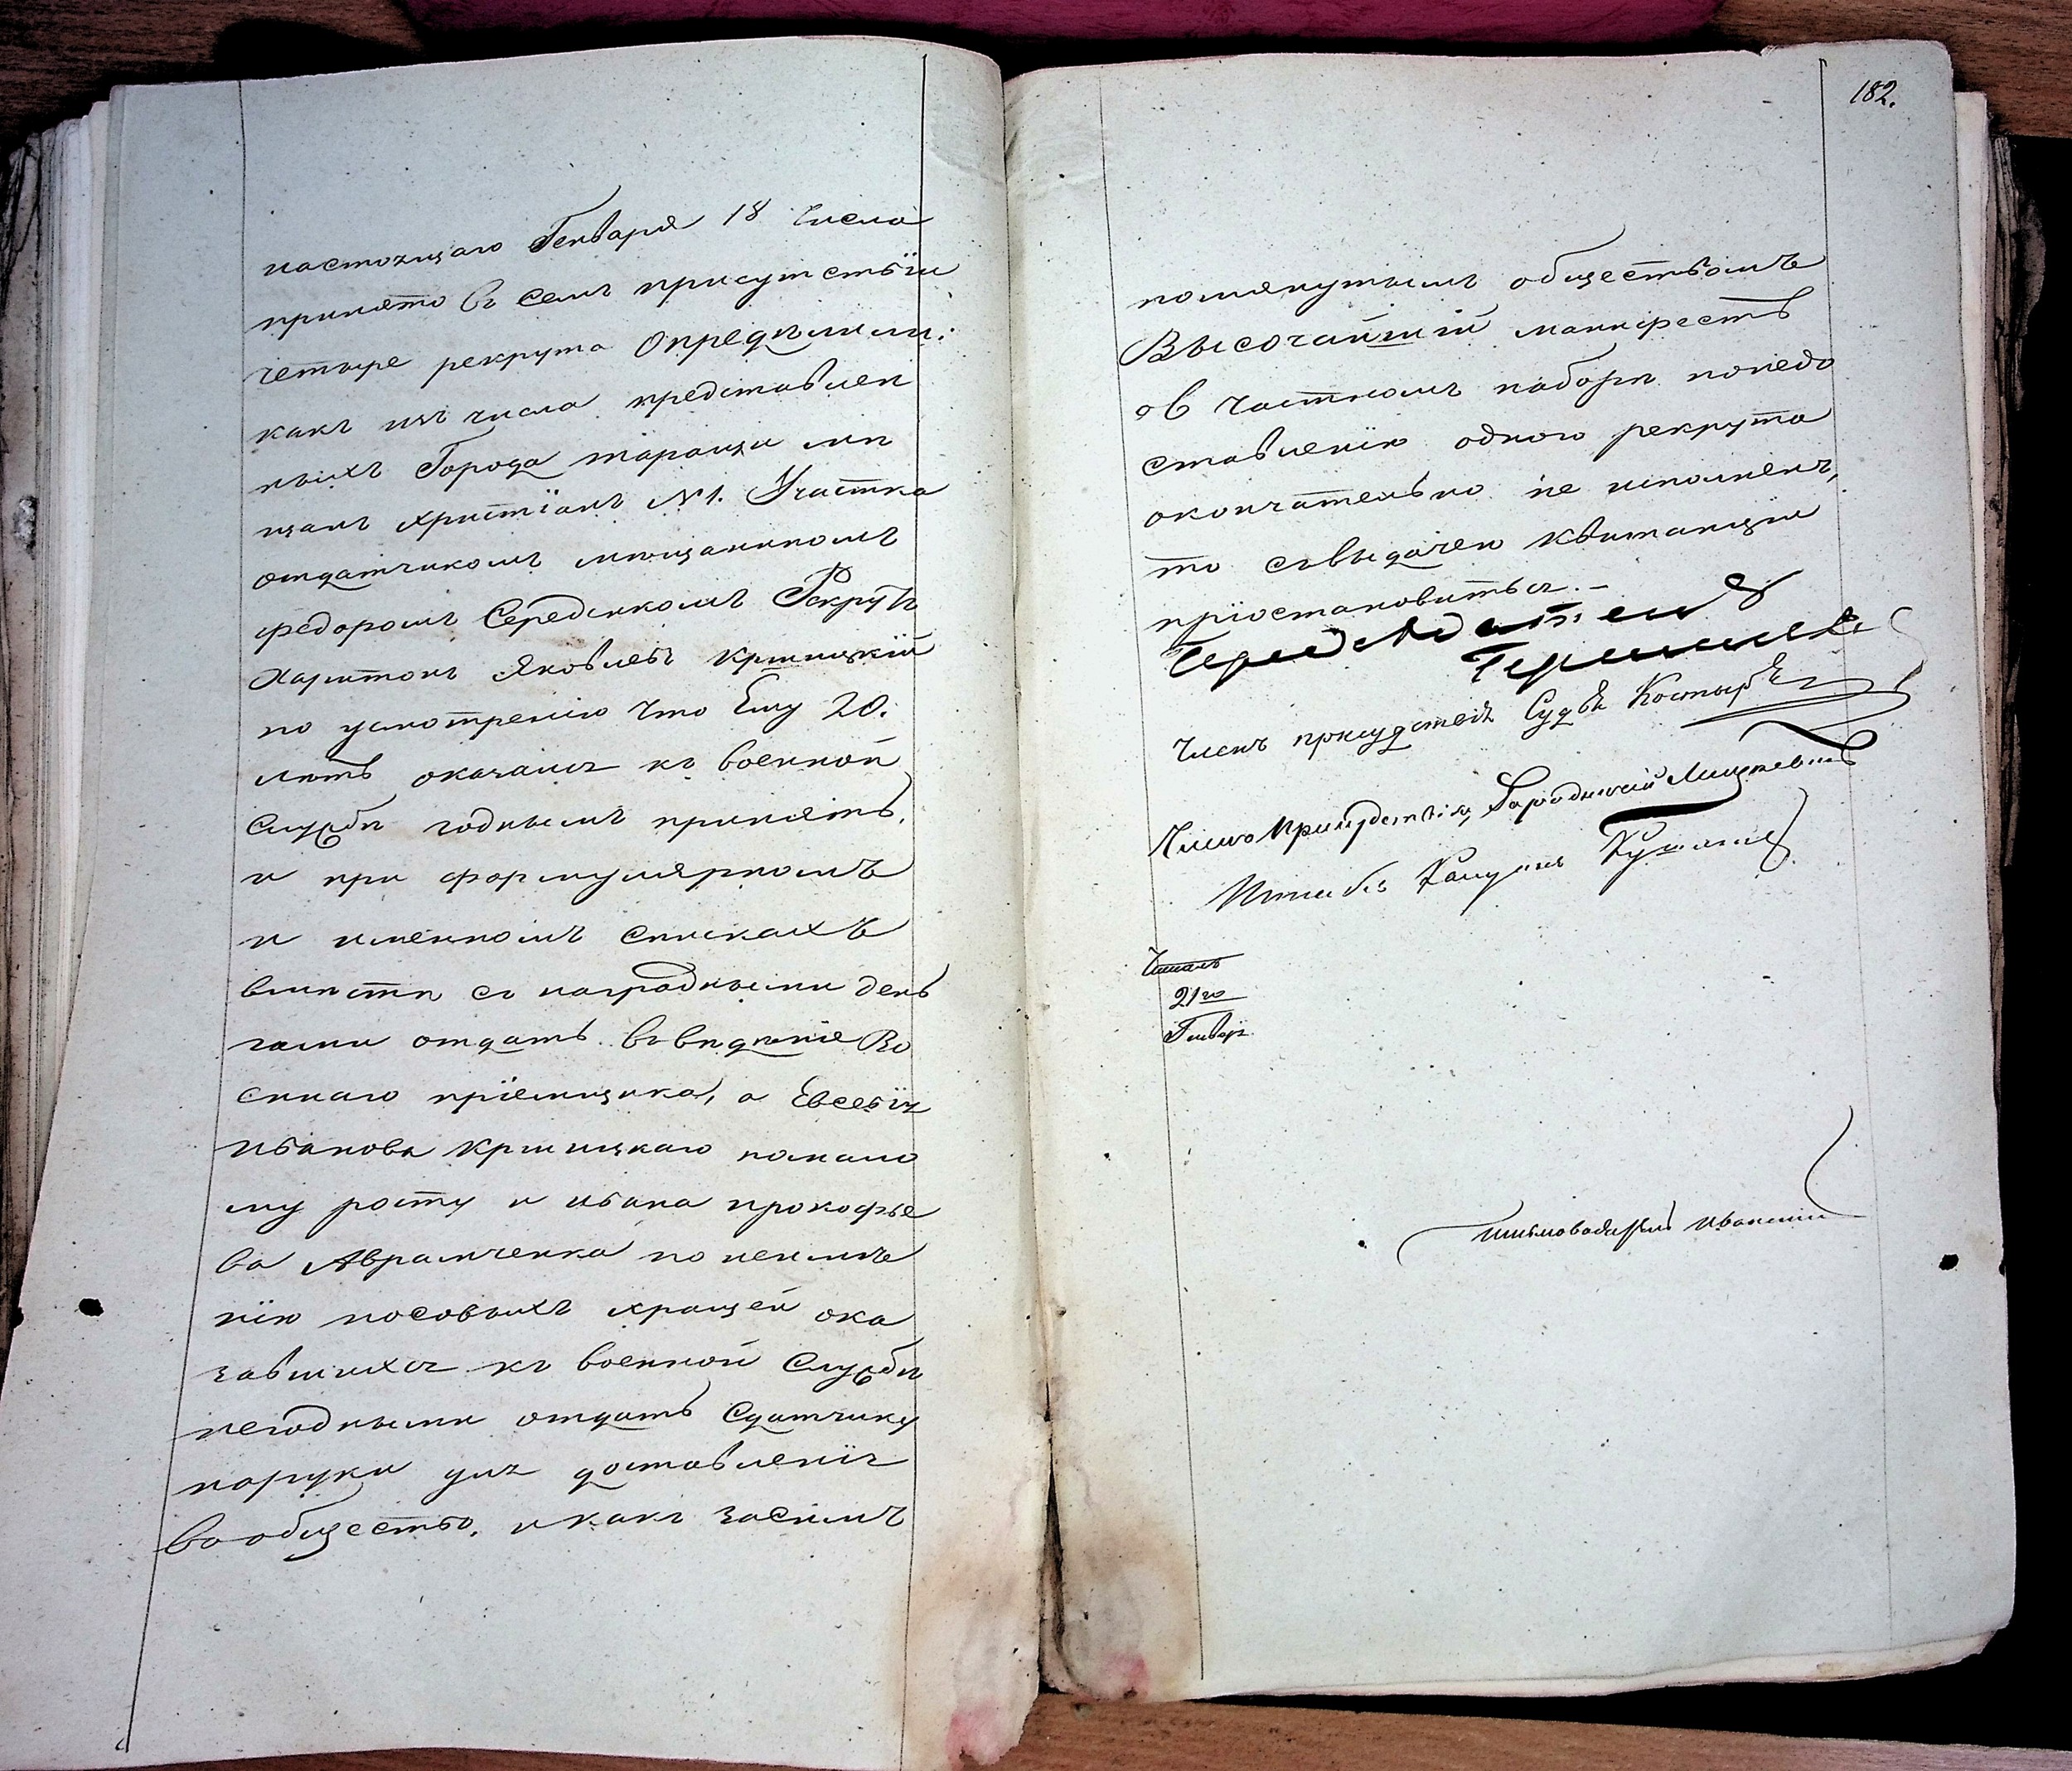 настоящаго Генваря 18 числа
принято въ семъ присутствіи
четыре рекрута Опредѣлили:
какъ изъ числа представлен
ныхъ Города таращи мѣ
щанъ христіанъ №1. Участка
отдатчикомъ мѣщаниномъ
федоромъ Середенкомъ Рекрутъ
Харитонъ Яковлевъ Криницкій
по усмотренію что Ему 20.
лѣтъ оказался къ военной
Службѣ годнымъ принять,
и при формулярномъ
и именномъ спискахъ
вмѣстѣ съ наградными день
гами отдать въ вѣденіе Во
еннаго пріемщика, а Евсевія
Иванова Криницкаго помало
му росту и ивана прокофье
ва Аврамченка по неимѣ
нію носовыхъ хращей ока
завшихся къ военной Службѣ
негодными отдать Сдатчику
наруки для доставленія
вообщество, икакъ засимъ
182.
помянутымъ обществомъ
Высочайшій манифестъ
о частномъ наборѣ понедо
ставленію одного рекрута
окончательно не исполненъ,
то съвыдачею квитанціи
пріостановиться. –
Предсѣдатель
Членъ присудствія Судья
Членъ Присудствія, Городничій
Штабъ
Читалъ
21го
Генваря
письмоводитель